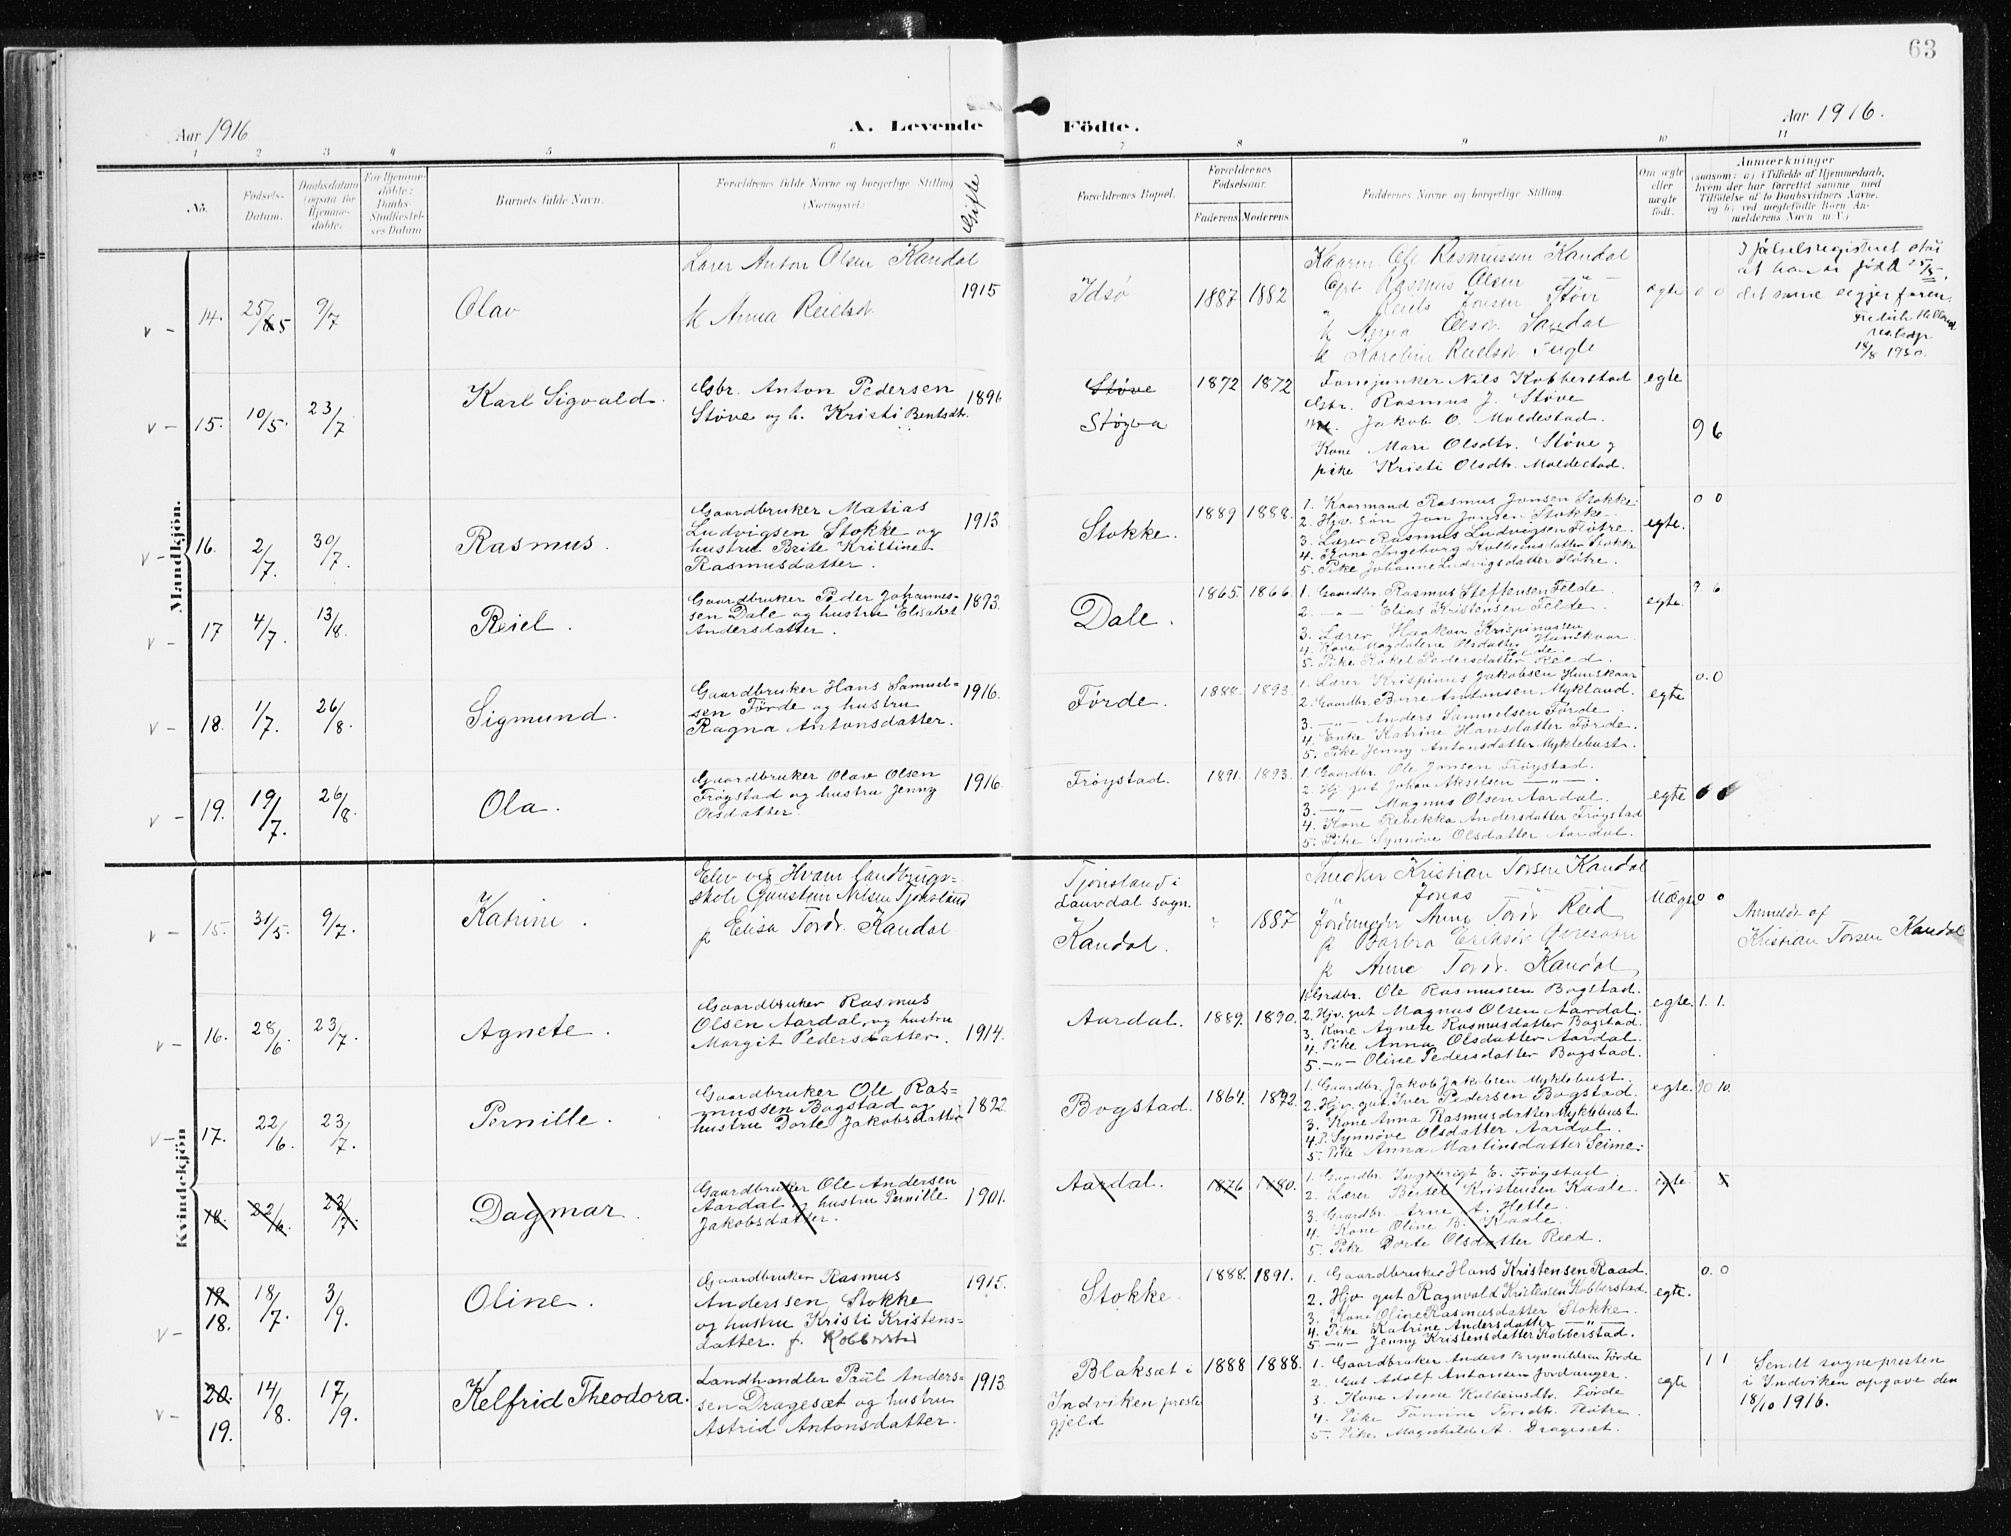 63
Aar 1916
A. Levende
Födte.
Aar 1916.
1 2 3 4 5 6 7 8 9 10 11
No.
Födsels-
Datum.
Daabsdatum
(ogsaa for
Hjemme-
döbte.)
For Hjemme-
döbte:
Daabs-
Stadfæstel-
ses Datum
Barnets fulde Navn.
Forældrenes fulde Navne og borgerlige Stilling
(Næringsvei.)
Gifte
Forældrenes Bopæl.
Forældrenes
Födselsaar.
Faderens
Moderens
Faddernes Navne og borgerlige Stilling.
Om ægte
eller
uægte
födt.
Anmærkninger
(saasom: a) i Tilfælde af Hjemmedaab,
hvem der har forrettet samme med
Tilföielse af to Daabsvidners Navne,
og b) ved uægtefödte Börn An-
melderens Navn m. V.)
Mandkjön.
14. 25/5 9/7
Olav
Lærer Anton Olsen Kandal
k Anna Reielsd.
1915
Idsø
1887 1882
Kaarm. Ole Rasmussen Kandal
Gbr. Rasmus Olsen
" Reiels Jonsen Støv
k Anna Olsd. Sandal
k Karolin Reielsd. Fugle
egte
0 0
I fødselsregisteret står
at han er født 25/5,
det same segjer faren.
Fredrik Helland
res.kap.
18/8 1950.
15. 10/5. 23/7
Karl Sigvald.
Gbr. Anton Pedersen
Støve og h. Kristi Bentsdtr.
1896
Støve
Støyva
1872 1872
Fanejunker Nils Kobberstad
Gbr. Rasmus J. Støve
Jakob O. Moldestad.
Kone Mari Olsdtr. Støve
pike Kristi Olsdtr. Moldestad.
egte
9 6
16. 2/7. 30/7.
Rasmus.
Gaardbruker Matias
Ludvigsen Stokke og
hustru Brite Kristine
Rasmusdatter.
1913
Stokke.
1889 1888.
1. Kaarmand Rasmus Jonsen Stokke.
2. Hjv. søn Jon Jonsen Stokke.
3. Lærer Rasmus Ludvigsen Fløtre.
4. Kone Ingeborg Kolbeinsdatter Stokke
5. Pike Johanne Ludvigsdatter Fløtre.
egte.
0 0
17 4/7. 13/8.
Reiel.
Gaardbruker Peder Johannes-
sen Dale og hustru Elisabet
Andersdatter.
1893.
Dale.
1865 1866.
1. Gaardbr. Rasmus Steffensen Felde.
2. —"— Elias Kristensen Felde
3. Lærer Haakon Krispinussen
4. Kone Magdalene Olsdatter Hunskaar.
5. Pike Rakel Pedersdatter Reed.
egte.
9 6
18. 1/7. 26/8.
Sigmund.
Gaardbruker Hans Samuel-
sen Førde og hustru
Ragna Antonsdatter.
1916.
Førde.
1888. 1893.
1. Lærer Krispinus Jakobsen Hunskaar
2. Gaardbr. Antonsen Mykland.
3. —"— Anders Samuelsen Førde.
4. Enke Katrine Hansdatter Førde.
5. Pike Jenny Antonsdatter Myklebust.
egte
0. 0
19. 19/7. 26/8.
Ola.
Gaardbruker Olav Olsen
Frøystad og hustru Jenny
Olsdatter.
1916.
Frøystad.
1891. 1893.
1. Gaardbr. Ole Jonsen Frøystad.
2. Hj. gut Johan Akselsen —"—.
3. —"— Magnus Olsen Aardal.
4. Kone Rebekka Andersdatter Frøystad
5. Pike Synnøve Olsdatter Aardal.
egte
Kvindekjön
15. 31/5. 9/7.
Katrine.
Elev ved Hvam landbrugs-
skole Gunstein Nilsen Tjonsland
p Elisa Torsd. Kandal
Tjonsland i
Lauvdal sogn.
Kandal.
1887
Snedker Kristian Torsen Kandal
" Jonas "
Jordmoder Anna Torsd. Reid
p Barbra Eriksd.
p Anne Torsd. Kandal
Uægte
0 0
Anmeldt af
Kristian Torsen Kandal
16. 28/6 23/7.
Agnete.
Gaardbruker Rasmus
Olsen Aardal, og hustru
Margit Pedersdatter.
1914.
Aardal.
1889. 1890.
1. Grdbr. Ole Rasmussen Bogstad.
2. Hjv. gut Magnus Olsen Aardal.
3. Kone Agnete Rasmusdatter Bogstad.
4. Pike Anna Olsdatter Aardal.
5. —"— Oline Pedersdatter Bogstad.
egte.
1. 1.
17. 22/6. 23/7.
Pernille.
Gaardbruker Ole Ras-
mussen Bogstad og
hustru Dorte Jakobsdatter
1892.
Bogstad.
1864. 1872.
1. Gaardbr. Jakob Jakobsen Myklebust.
2. Hjv. gut Iver Pedersen Bogstad.
3. Kone Anna Rasmusdatter Myklebust.
4. P. Synnøve Olsdatter Aardal.
5. Pike Anna Martinsdatter Seime.
egte.
10 10.
18. 22/6. 23/7.
Dagmar.
Gaardbruker Ole Andersen
Aardal og hustru Pernille
Jakobsdatter.
1901.
Aardal.
1876 1880.
1. Gaardbr. Ingebrigt E. Frøystad.
2. Lærer Bertel Kristensen Kaale.
3. Gaardbr. Arne A. Helle.
4. Kone Oline B. Kaale.
5. Pike Dorte Olsdatter Reed.
egte
19. 18/7. 3/9.
18.
Oline.
Gaardbruker Rasmus
Anderssen Stokke
og hustru Kristi Kristens-
datter. f. Kobberstad
1915.
Stokke.
1888. 1891.
1. Gaardbruker Hans Kristensen Raad.
2. Hjv gut Ragnvald Kristensen Kobberstad.
3. Kone Oline Rasmusdatter Stokke.
4. Pike Katrine Andersdatter —"—
5. —"— Jenny Kristensdatter Kobberstad.
egte.
0. 0
20. 14/8. 17/9.
19.
Kelfrid Theodora.
Landhandler Paul Anders-
sen Dragesæt og hustru
Astrid Antonsdatter.
1913.
Blaksæt i
Indviken preste
gjeld
1888 1888.
1. Gaardbruker Anders Brynnildsen Førde
2. Gut Adolf Antonsen Jordanger.
3. Kone Anne Kolbeinsdtr. Førde
4. Pike Tomine Tordtr. Fløtre.
5. Pike Magnhild A. Dragesæt.
egte
1 1
Sendt sognepresten
i Indviken opgave den
18/10 1916.